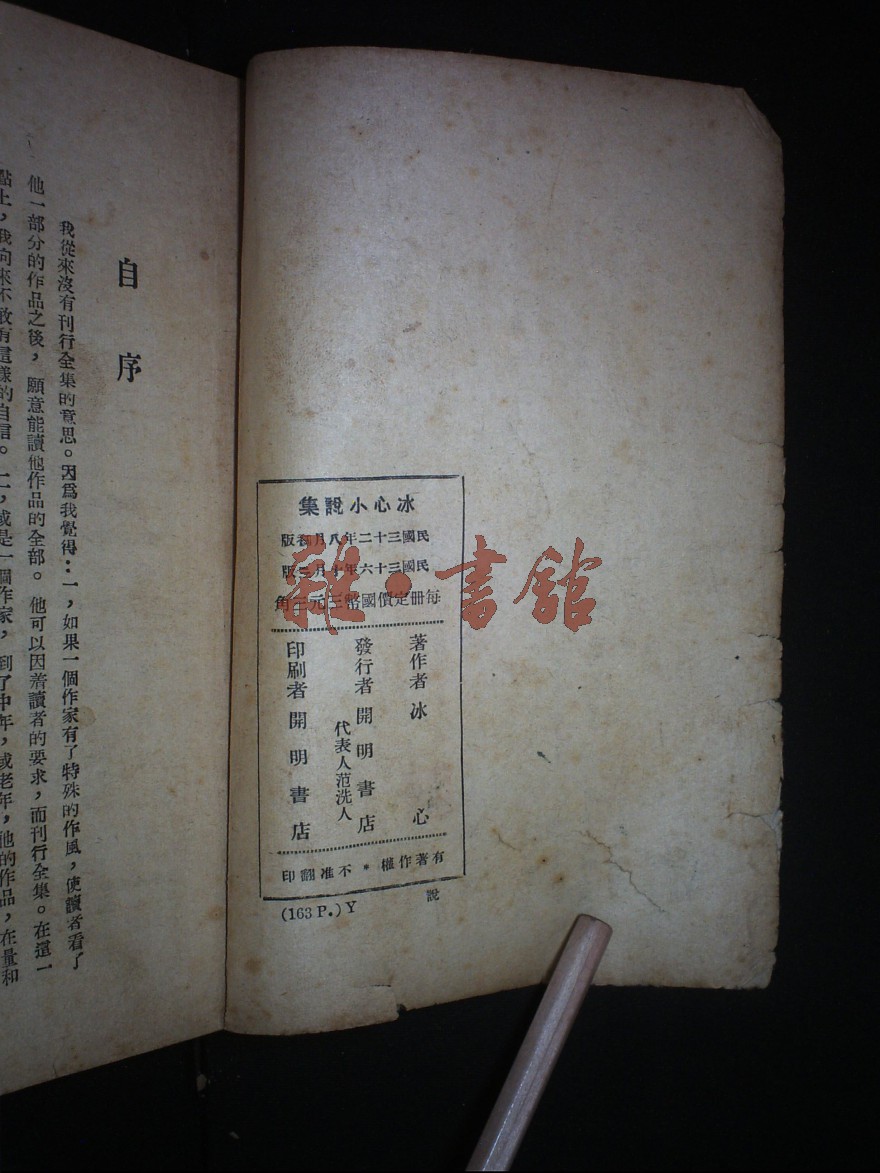 冰心小說集
民國三十二年八月初版
民國三十六年十月三版
每冊定價國幣三元三角
著作者 冰心
發行者 開明書店
代表人范洗人
印刷者 開明書店
有著作權*不准翻印
(163 P.) Y 說
雜·書館
自序
我從來沒有刊行全集的意思。因爲我覺得：一，如果一個作家有了特殊的作風，使讀者看了
他一部分的作品之後，願意能讀他作品的全部。他可以因着讀者的要求，而刊行全集。在這一
點上，我向來不敢有這樣的自信。二，或是一個作家，到了中年，或老年，他的作品，在量和